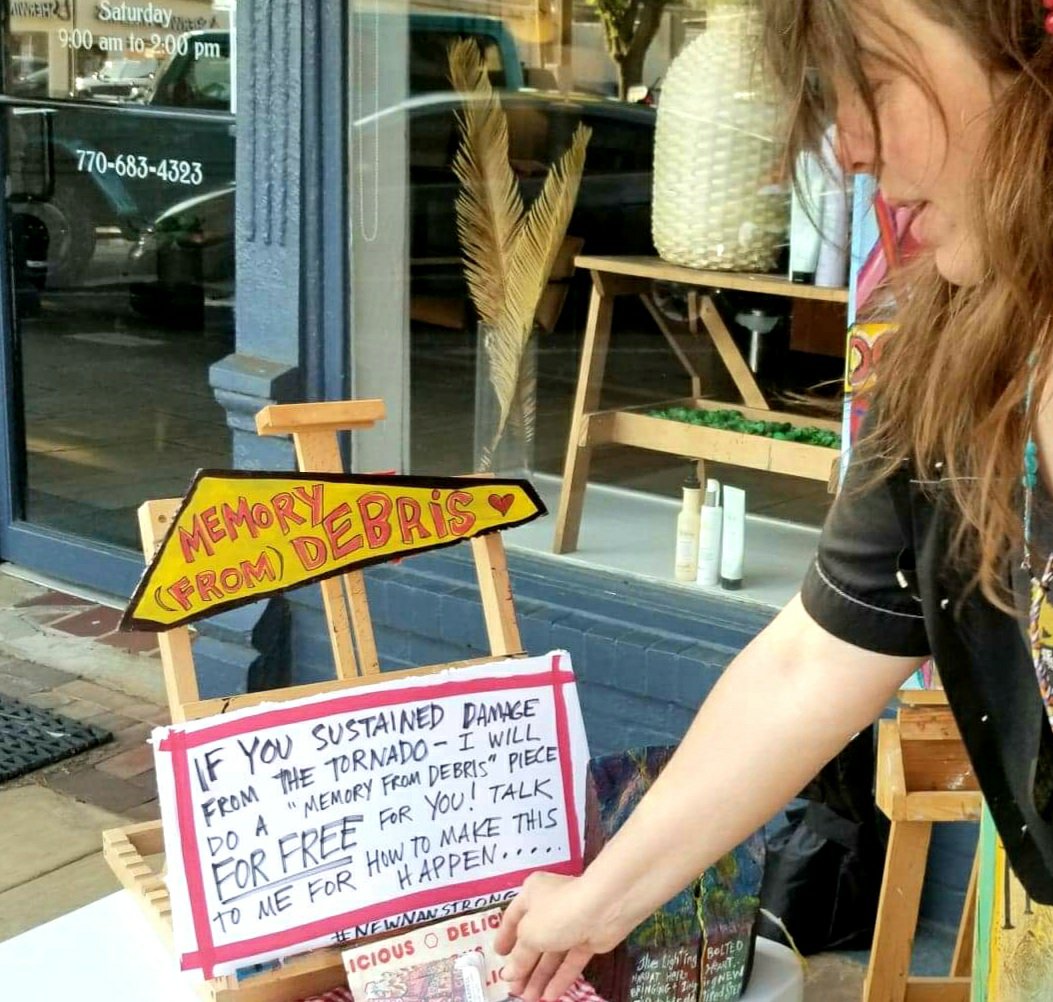 Saturday
9:00 am to 2:00 pm
770-683-4323
MEMORY
(FROM) DEBRIS
IF YOU SUSTAINED DAMAGE
FROM THE TORNADO - I WILL
DO A "MEMORY FROM DEBRIS" PIECE
FOR FREE FOR YOU! TALK
TO ME FOR HOW TO MAKE THIS
HAPPEN.....
#NEWNANSTRONG
ICIOUS DELIC
The lighting BOLTED
BRINGING
NEW